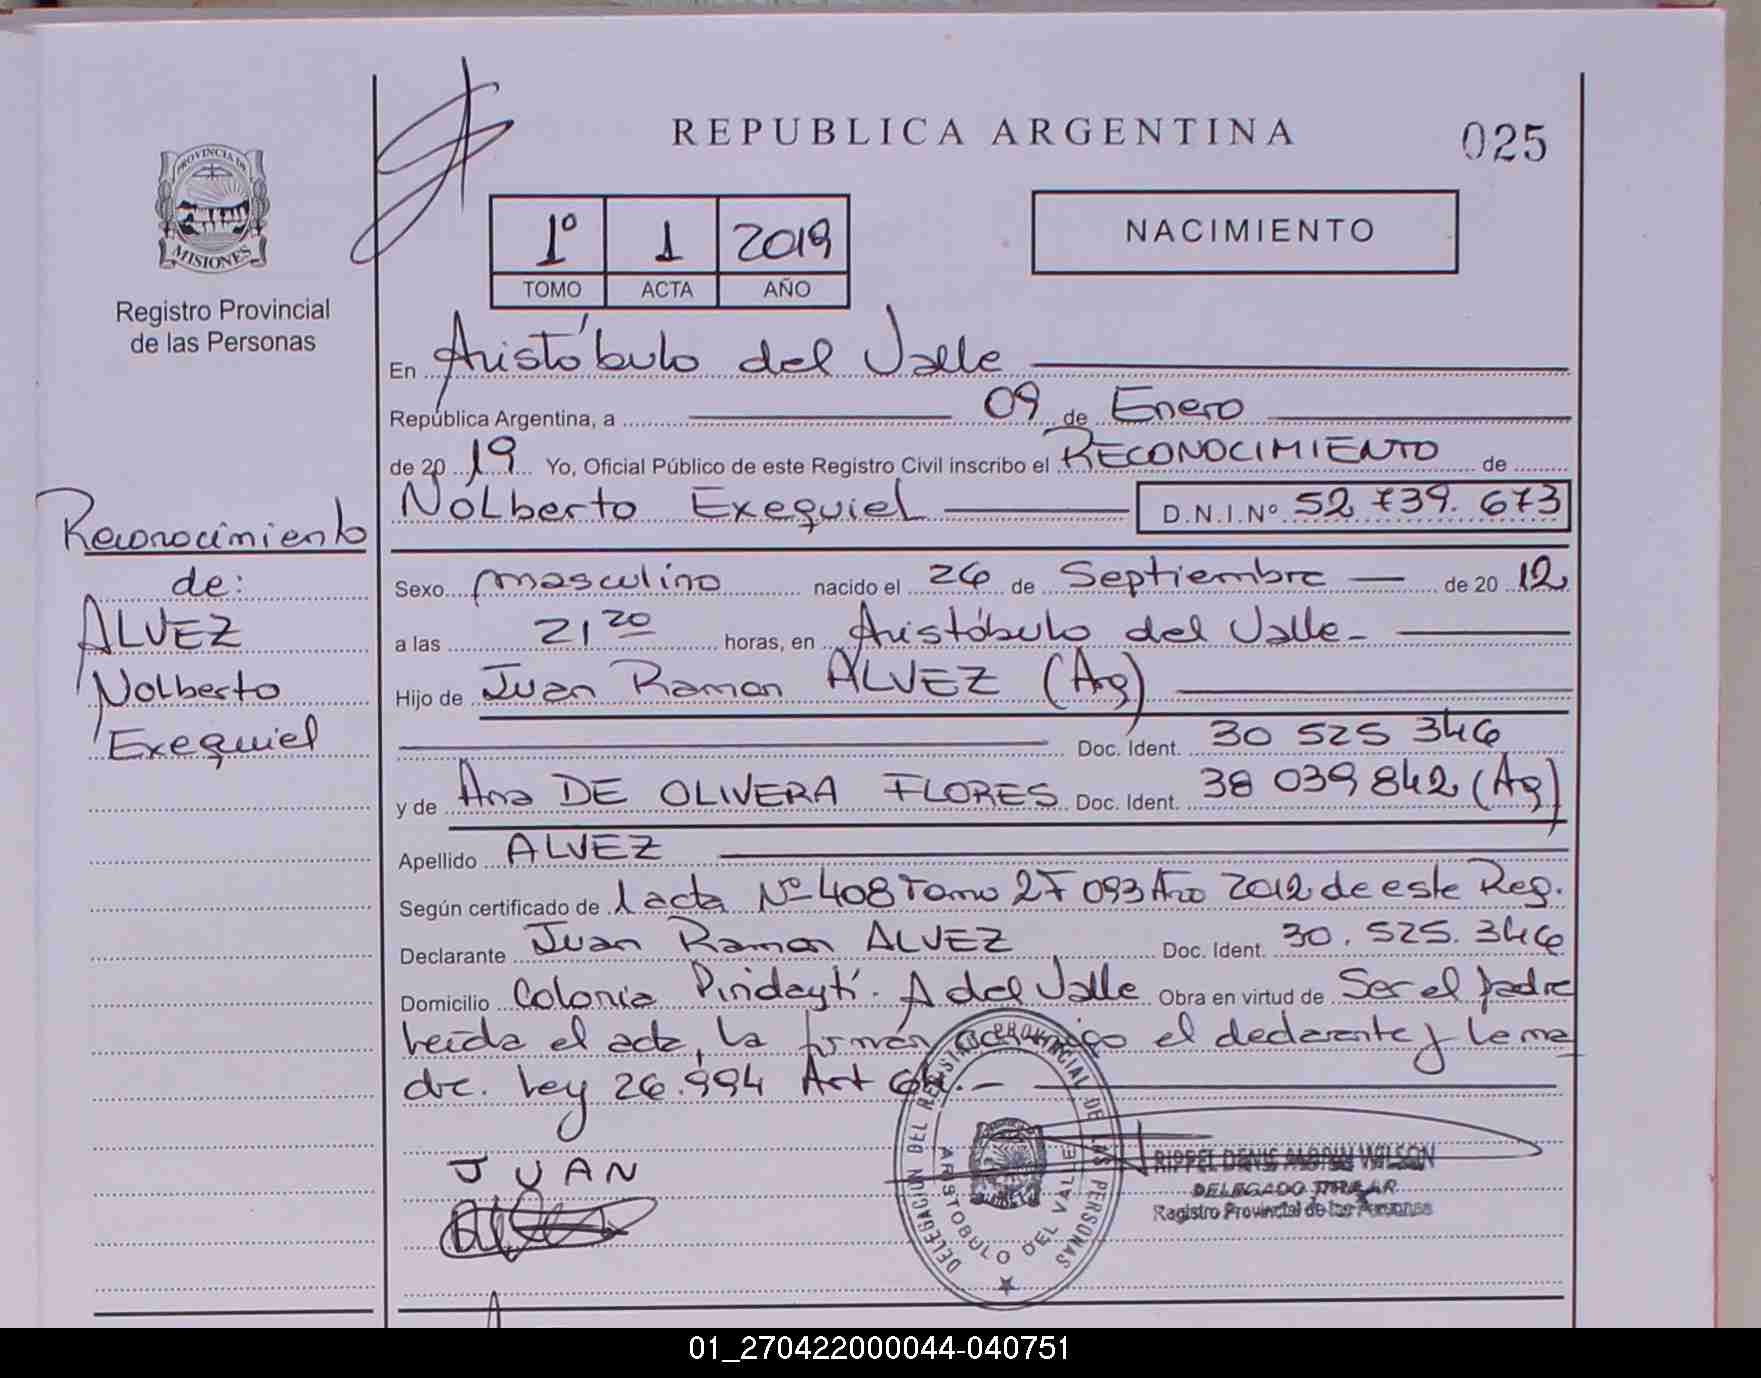 REPUBLICA ARGENTINA
025
PROVINCIA DE
MISIONES
Registro Provincial
de las Personas
1º 1 2019
TOMO ACTA AÑO
NACIMIENTO
En Aristóbulo del Valle
República Argentina, a 09 de Enero
de 2019 Yo, Oficial Público de este Registro Civil inscribo el RECONOCIMIENTO de
Nolberto Exequiel D.N.I.Nº 52 739. 673
Reconocimiento
de:
ALVEZ
Nolberto
Exequiel
Sexo masculino nacido el 26 de Septiembre de 2012
a las 21 20 horas, en Aristóbulo del Valle-
Hijo de Juan Ramon ALVEZ (Arg)
Doc. Ident. 30 525 346
y de Ana DE OLIVERA FLORES Doc. Ident. 38 039 842 (Arg)
Apellido ALVEZ
Según certificado de 1 acta Nº 408 Tomo 2 F 093 Año 2012 de este Reg.
Declarante Juan Ramon ALVEZ Doc. Ident. 30.525.346
Domicilio Colonia Pindayti. A del Valle Obra en virtud de Ser el padre
Leída el acta, la firman conmigo el declarante y la ma
dre. Ley 26.994 Art 64.-
JUAN
DELEGACION DEL REGISTRO PROVINCIAL DE LAS PERSONAS
ARISTOBULO DEL VALLE
RIPPEL DENIS WILSON
DELEGADO TITULAR
Registro Provincial de las Personas
01_270422000044-040751